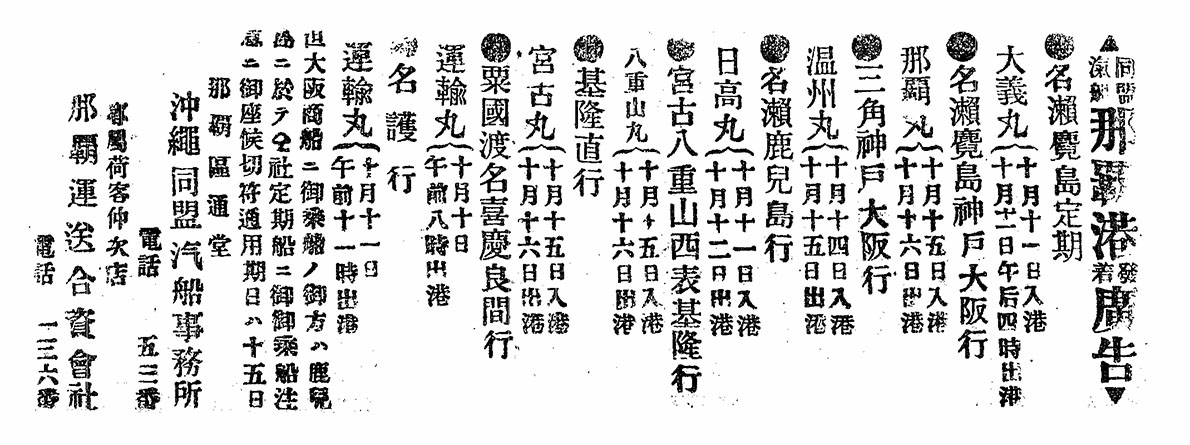 ▲同盟汽船那覇港發着廣告▼
●名瀨鹿兒島定期
大義丸
十月十一日入港
十月十二日午后四時出港
●名瀨鹿兒島神戸大阪行
那覇丸
十月十五日入港
十月十六日出港
●三角神戸大阪行
温州丸
十月十四日入港
十月十五日出港
●名瀨鹿兒島行
日高丸
十月十一日入港
十月十二日出港
●宮古八重山西表基隆行
八重山丸
十月十五日入港
十月十六日出港
●基隆直行
宮古丸
十月十五日入港
十月十六日出港
●粟國渡名喜慶良間行
運輸丸
十月十日
午前八時出港
●名護行
運輸丸
十月十一日
午前十一時出港
但大阪商船ニ御乘船ノ御方ハ鹿兒
島ニ於テ仝社定期船ニ御御乘船注
意ニ御座候切符通用期日ハ十五日
那覇區通堂
沖繩同盟汽船事務所
電話 五三番
專屬荷客仲次店
那覇運送合資會社
電話 一三六番